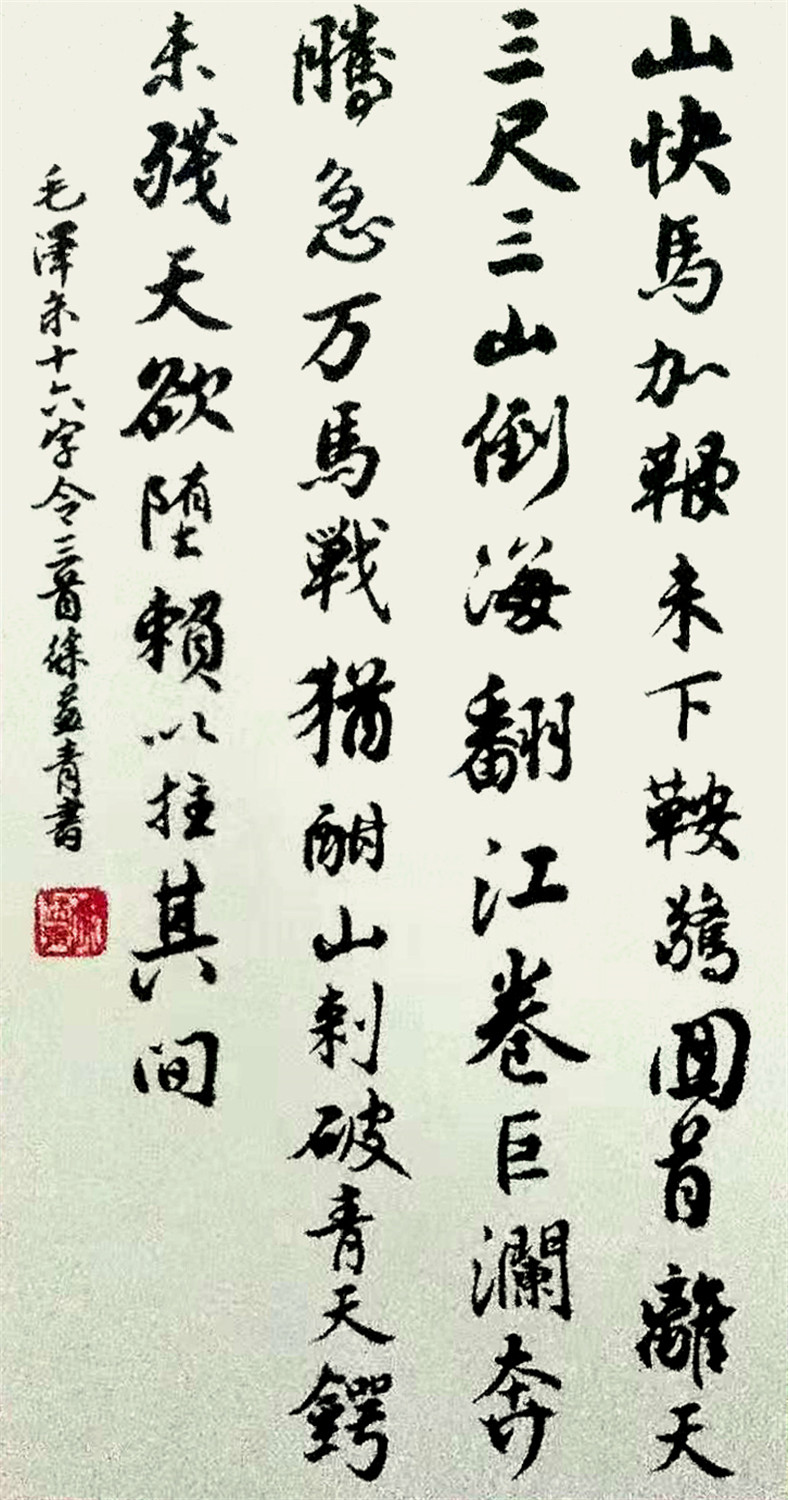 山快馬加鞭未下鞍驚回首離天
三尺三山倒海翻江卷巨瀾奔
騰急万馬戦猶酣山刺破青天鍔
未殘天欲堕賴以拄其间
毛泽东十六字令三首徐益青書